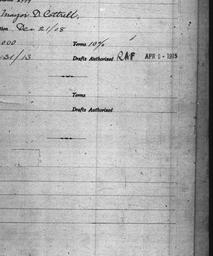 Mayor D. Cottrell,
Dec 21/18
000 Terms 10%
31/13 Drafts Authorized RAF APR 1-1915
Terms
Drafts Authorized